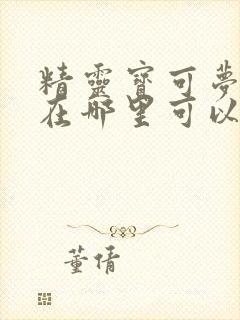 精靈寶可夢
在哪里可以
董倩